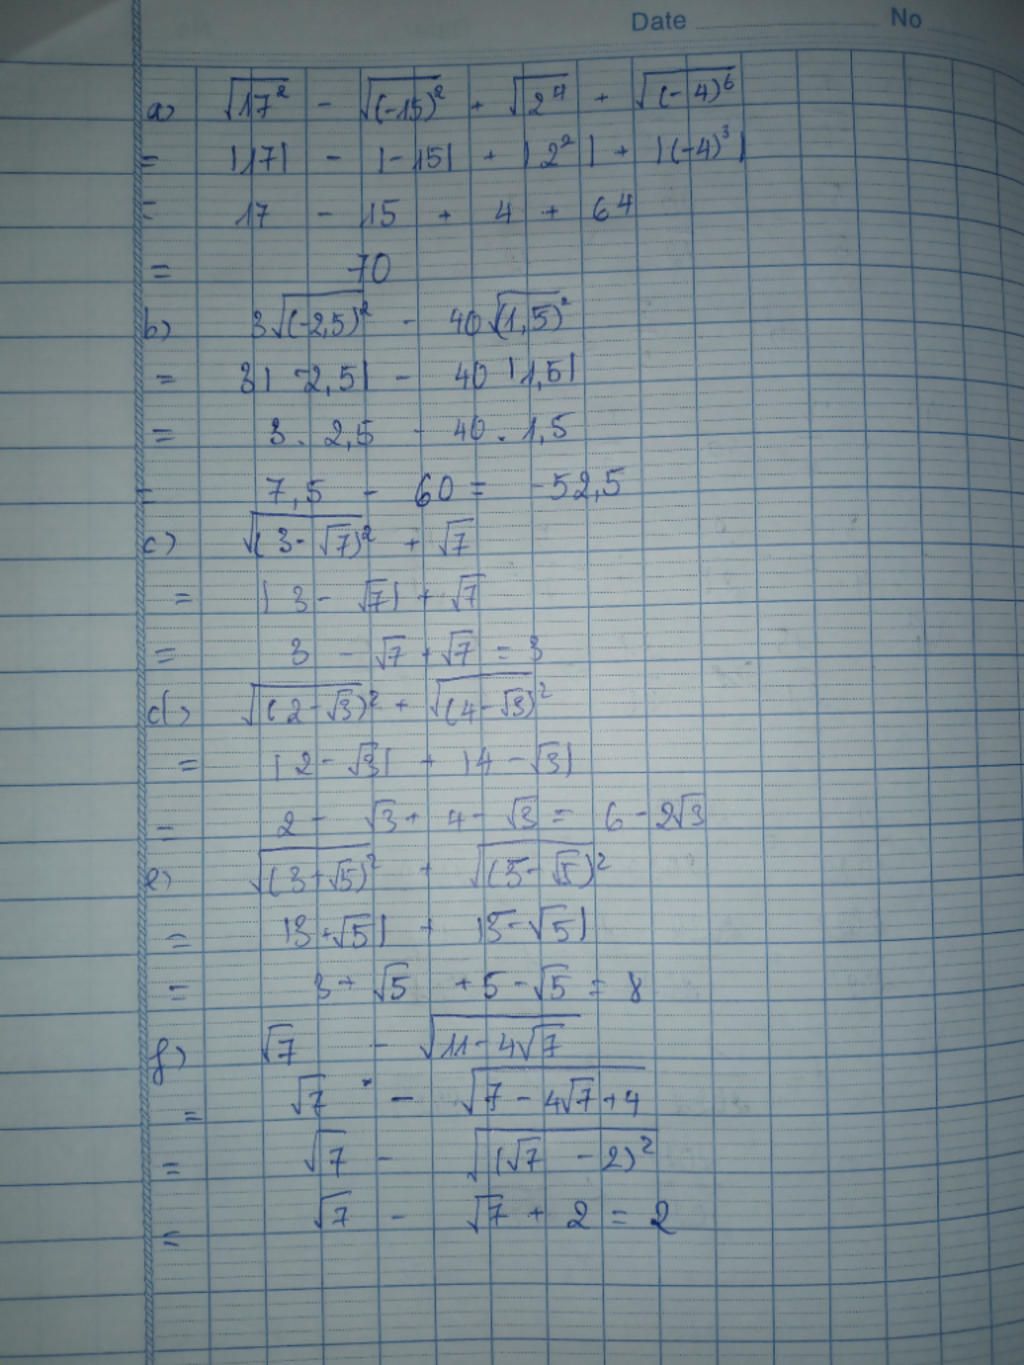 Date No
a) √17² - √(-15)² + √2⁴ + √(-4)⁶
= |17| - |-15| + |2²| + |(-4)³|
= 17 - 15 + 4 + 64
= 70
b) 3√(-2,5)² - 40√(1,5)²
= 3|-2,5| - 40|1,5|
= 3. 2,5 - 40. 1,5
= 7,5 - 60 = -52,5
c) √(3-√7)² + √7
= |3-√7| + √7
= 3 - √7 + √7 = 3
d) √(2-√3)² + √(4-√3)²
= |2-√3| + |4-√3|
= 2 - √3 + 4 - √3 = 6 - 2√3
e) √(3+√5)² + √(5-√5)²
= |3+√5| + |5-√5|
= 3 + √5 + 5 - √5 = 8
f) √7 - √11-4√7
= √7 - √7-4√7+4
= √7 - √(√7 - 2)²
= √7 - √7 + 2 = 2